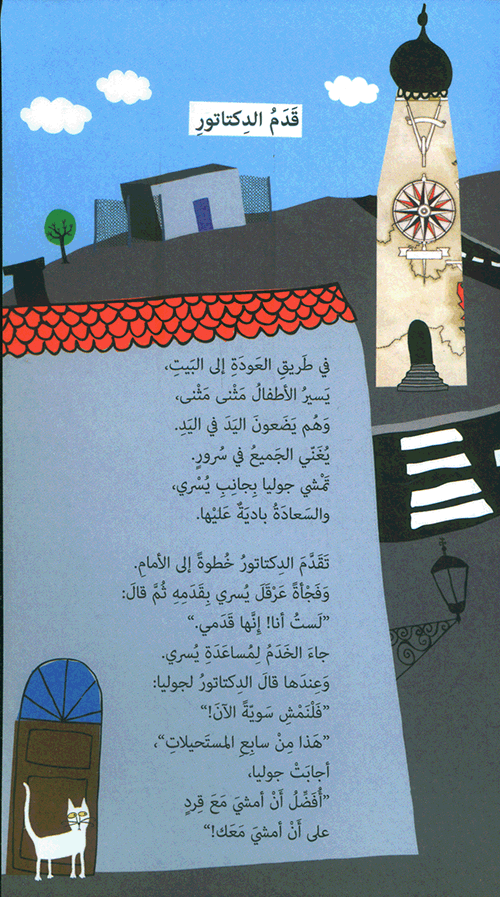 قَدَمُ الدِكتاتورِ
في طَريقِ العَودَةِ إلى البَيتِ،
يَسيرُ الأطفالُ مَثْنى مَثْنى،
وَهُم يَضَعونَ اليَدَ في اليَدِ.
يُغَنّي الجَميعُ في سُرورٍ.
تَمْشي جوليا بِجانِبِ يُسْري،
والسَعادَةُ بادِيَةٌ عَليْها.
تَقَدَّمَ الدِكتاتورُ خُطوةً إلى الأمامِ.
وَفَجْأةً عَرْقَلَ يُسري بِقَدَمِهِ ثُمَّ قالَ:
”لَستُ أنا! إِنَّها قَدَمي.“
جاءَ الخَدَمُ لِمُساعَدَةِ يُسري.
وَعِندَها قالَ الدِكتاتورُ لجوليا:
”فَلْنَمْشِ سَوِيّةً الآنَ!“
”هَذا مِنْ سابِعِ المستَحيلاتِ“،
أجابَتْ جوليا،
”أُفَضِّلُ أَنْ أمشيَ مَعَ قِردٍ
على أَنْ أمشيَ مَعَك!“